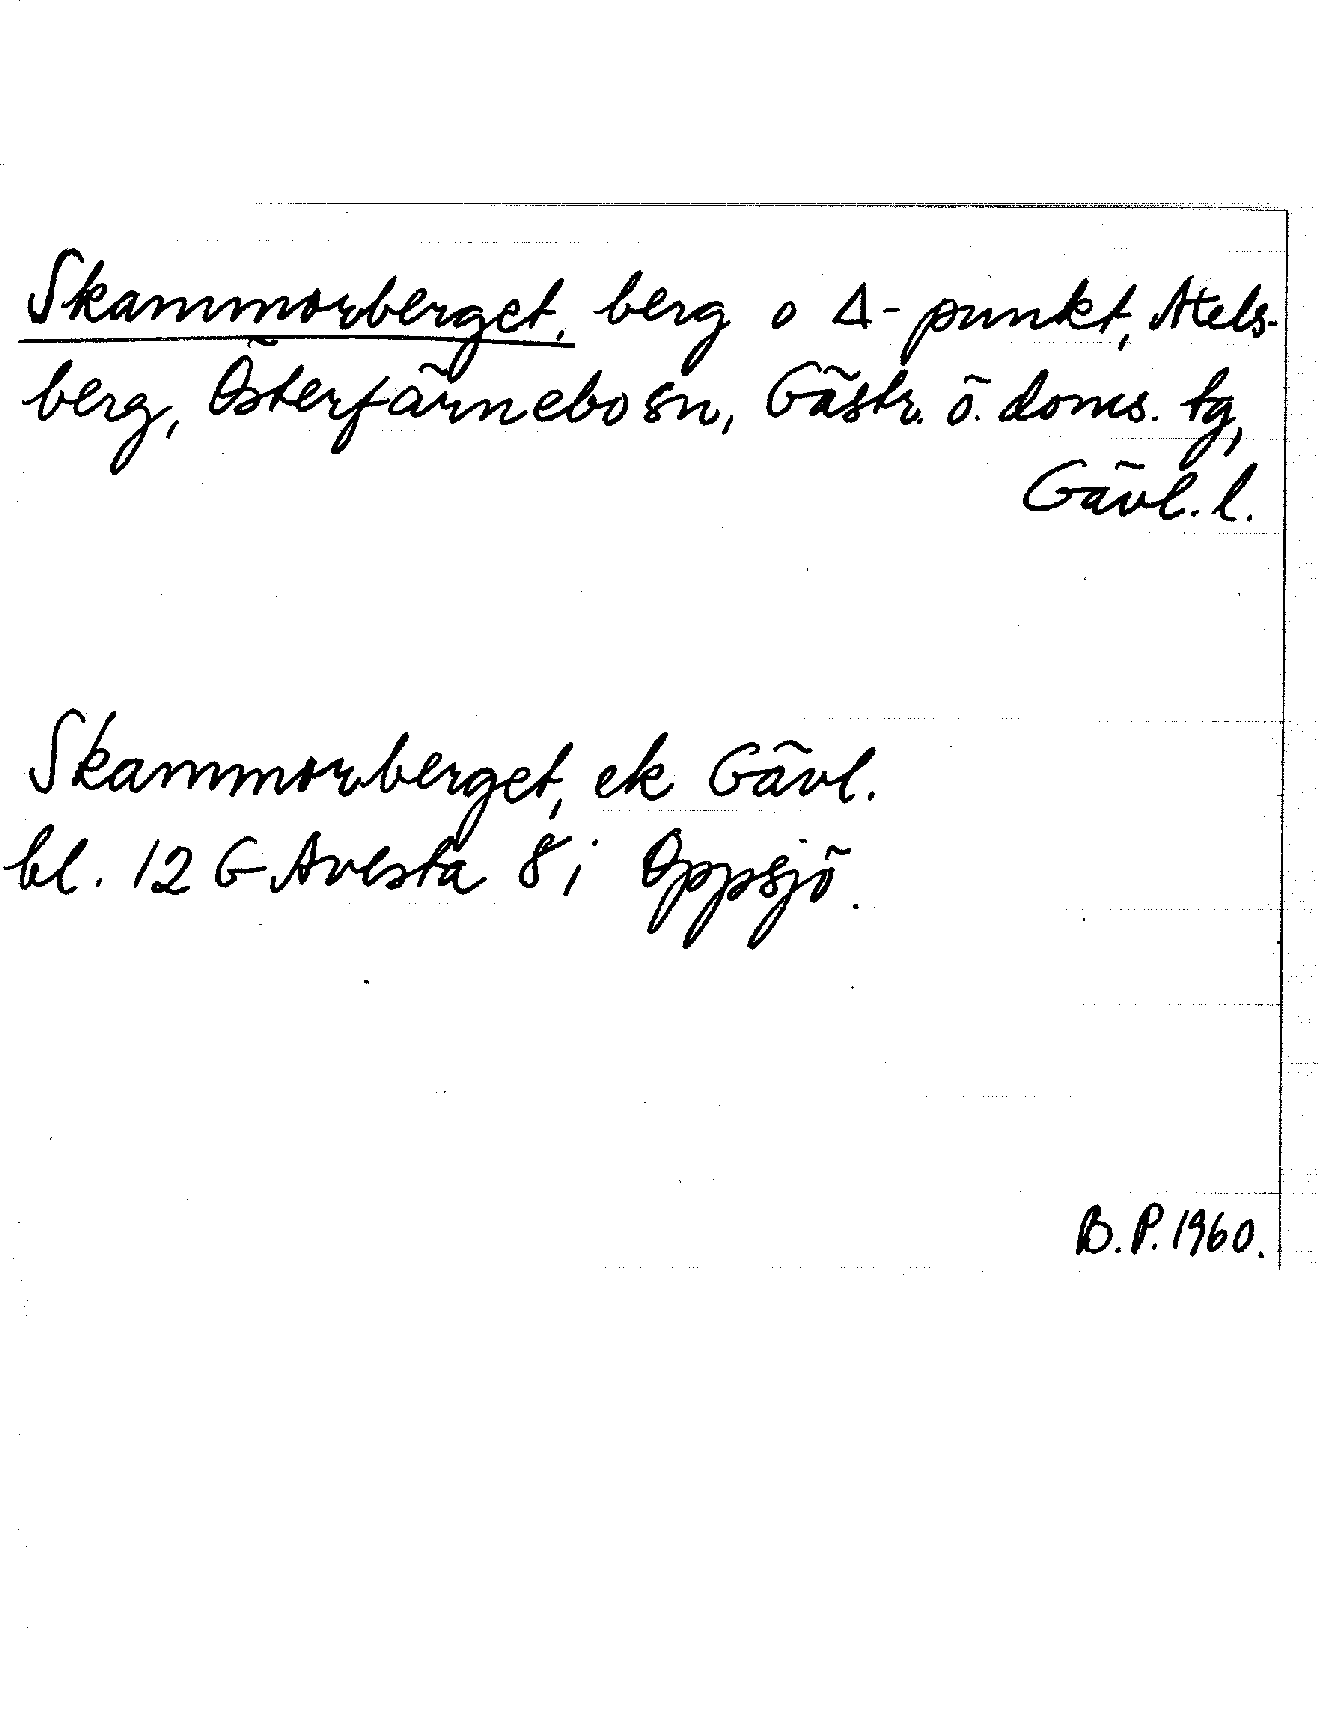 Skammorberget, berg o Δ-punkt, Atels-
berg, Österfärnebo sn, Gästr. ö. doms. tg,
Gävl. l.
Skammorberget, ek Gävl.
bl. 12 G Avesta 8 i Oppsjö.
B. P. 1960.